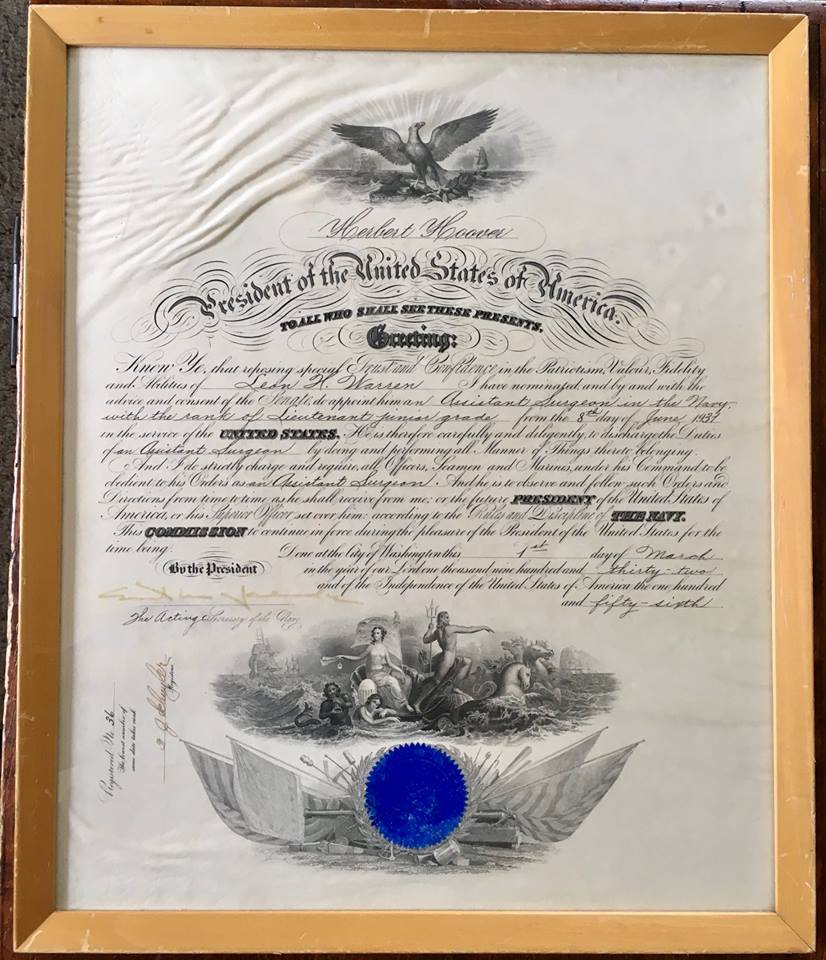 Herbert Hoover
President of the United States of America.
TO ALL WHO SHALL SEE THESE PRESENTS,
Greeting:
Know Ye, that reposing special Trust and Confidence in the Patriotism, Valour, Fidelity
and Abilities of Leon H. Warren I have nominated and by and with the
advice and consent of the Senate, do appoint him an Assistant Surgeon in the Navy,
with the rank of Lieutenant junior grade from the 8th day of June 1931
in the service of the UNITED STATES. He is therefore carefully and diligently, to discharge the Duties
of an Assistant Surgeon by doing and performing all Manner of Things thereto belonging.
And I do strictly charge and require, all Officers, Seamen and Marines, under his Command to be
obedient to his Orders as an Assistant Surgeon. And he is to observe and follow such Orders and
Directions from time to time as he shall receive from me; or the future PRESIDENT of the United States of
America, or his Superior Officer set over him; according to the Rules and Discipline of THE NAVY.
This COMMISSION to continue in force during the pleasure of the President of the United States for the
time being.
Done at the City of Washington this 1st day of March
in the year of our Lord one thousand nine hundred and thirty-two
and of the Independence of the United States of America, the one hundred
and fifty-sixth.
By the President
The Acting Secretary of the Navy
Registered No. 36
The lineal number of
date takes rank
Registrar